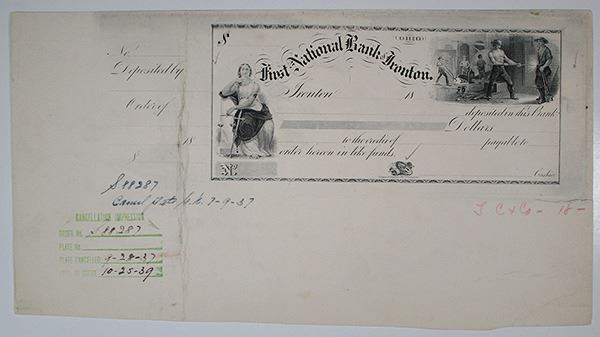 No.
Deposited by
Order of
$
18
$
OHIO
First National Bank Ironton.
Ironton 18
deposited in this Bank
Dollars
to the credit of payable to
order hereon in like funds
No. Cashier
S88287
7-9-37
CANCELLATION IMPRESSION
ORDER No. S88287
PLATE No.
PLATE CANCELLED 9-28-37
10-25-39
18-